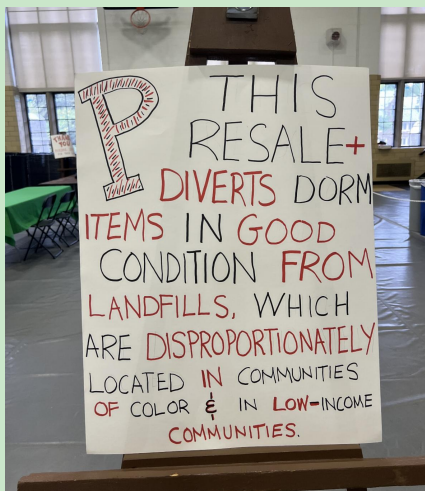 P THIS
RESALE+
DIVERTS DORM
ITEMS IN GOOD
CONDITION FROM
LANDFILLS, WHICH
ARE DISPROPORTIONATELY
LOCATED IN COMMUNITIES
OF COLOR & IN LOW-INCOME
COMMUNITIES.
THANK
YOU